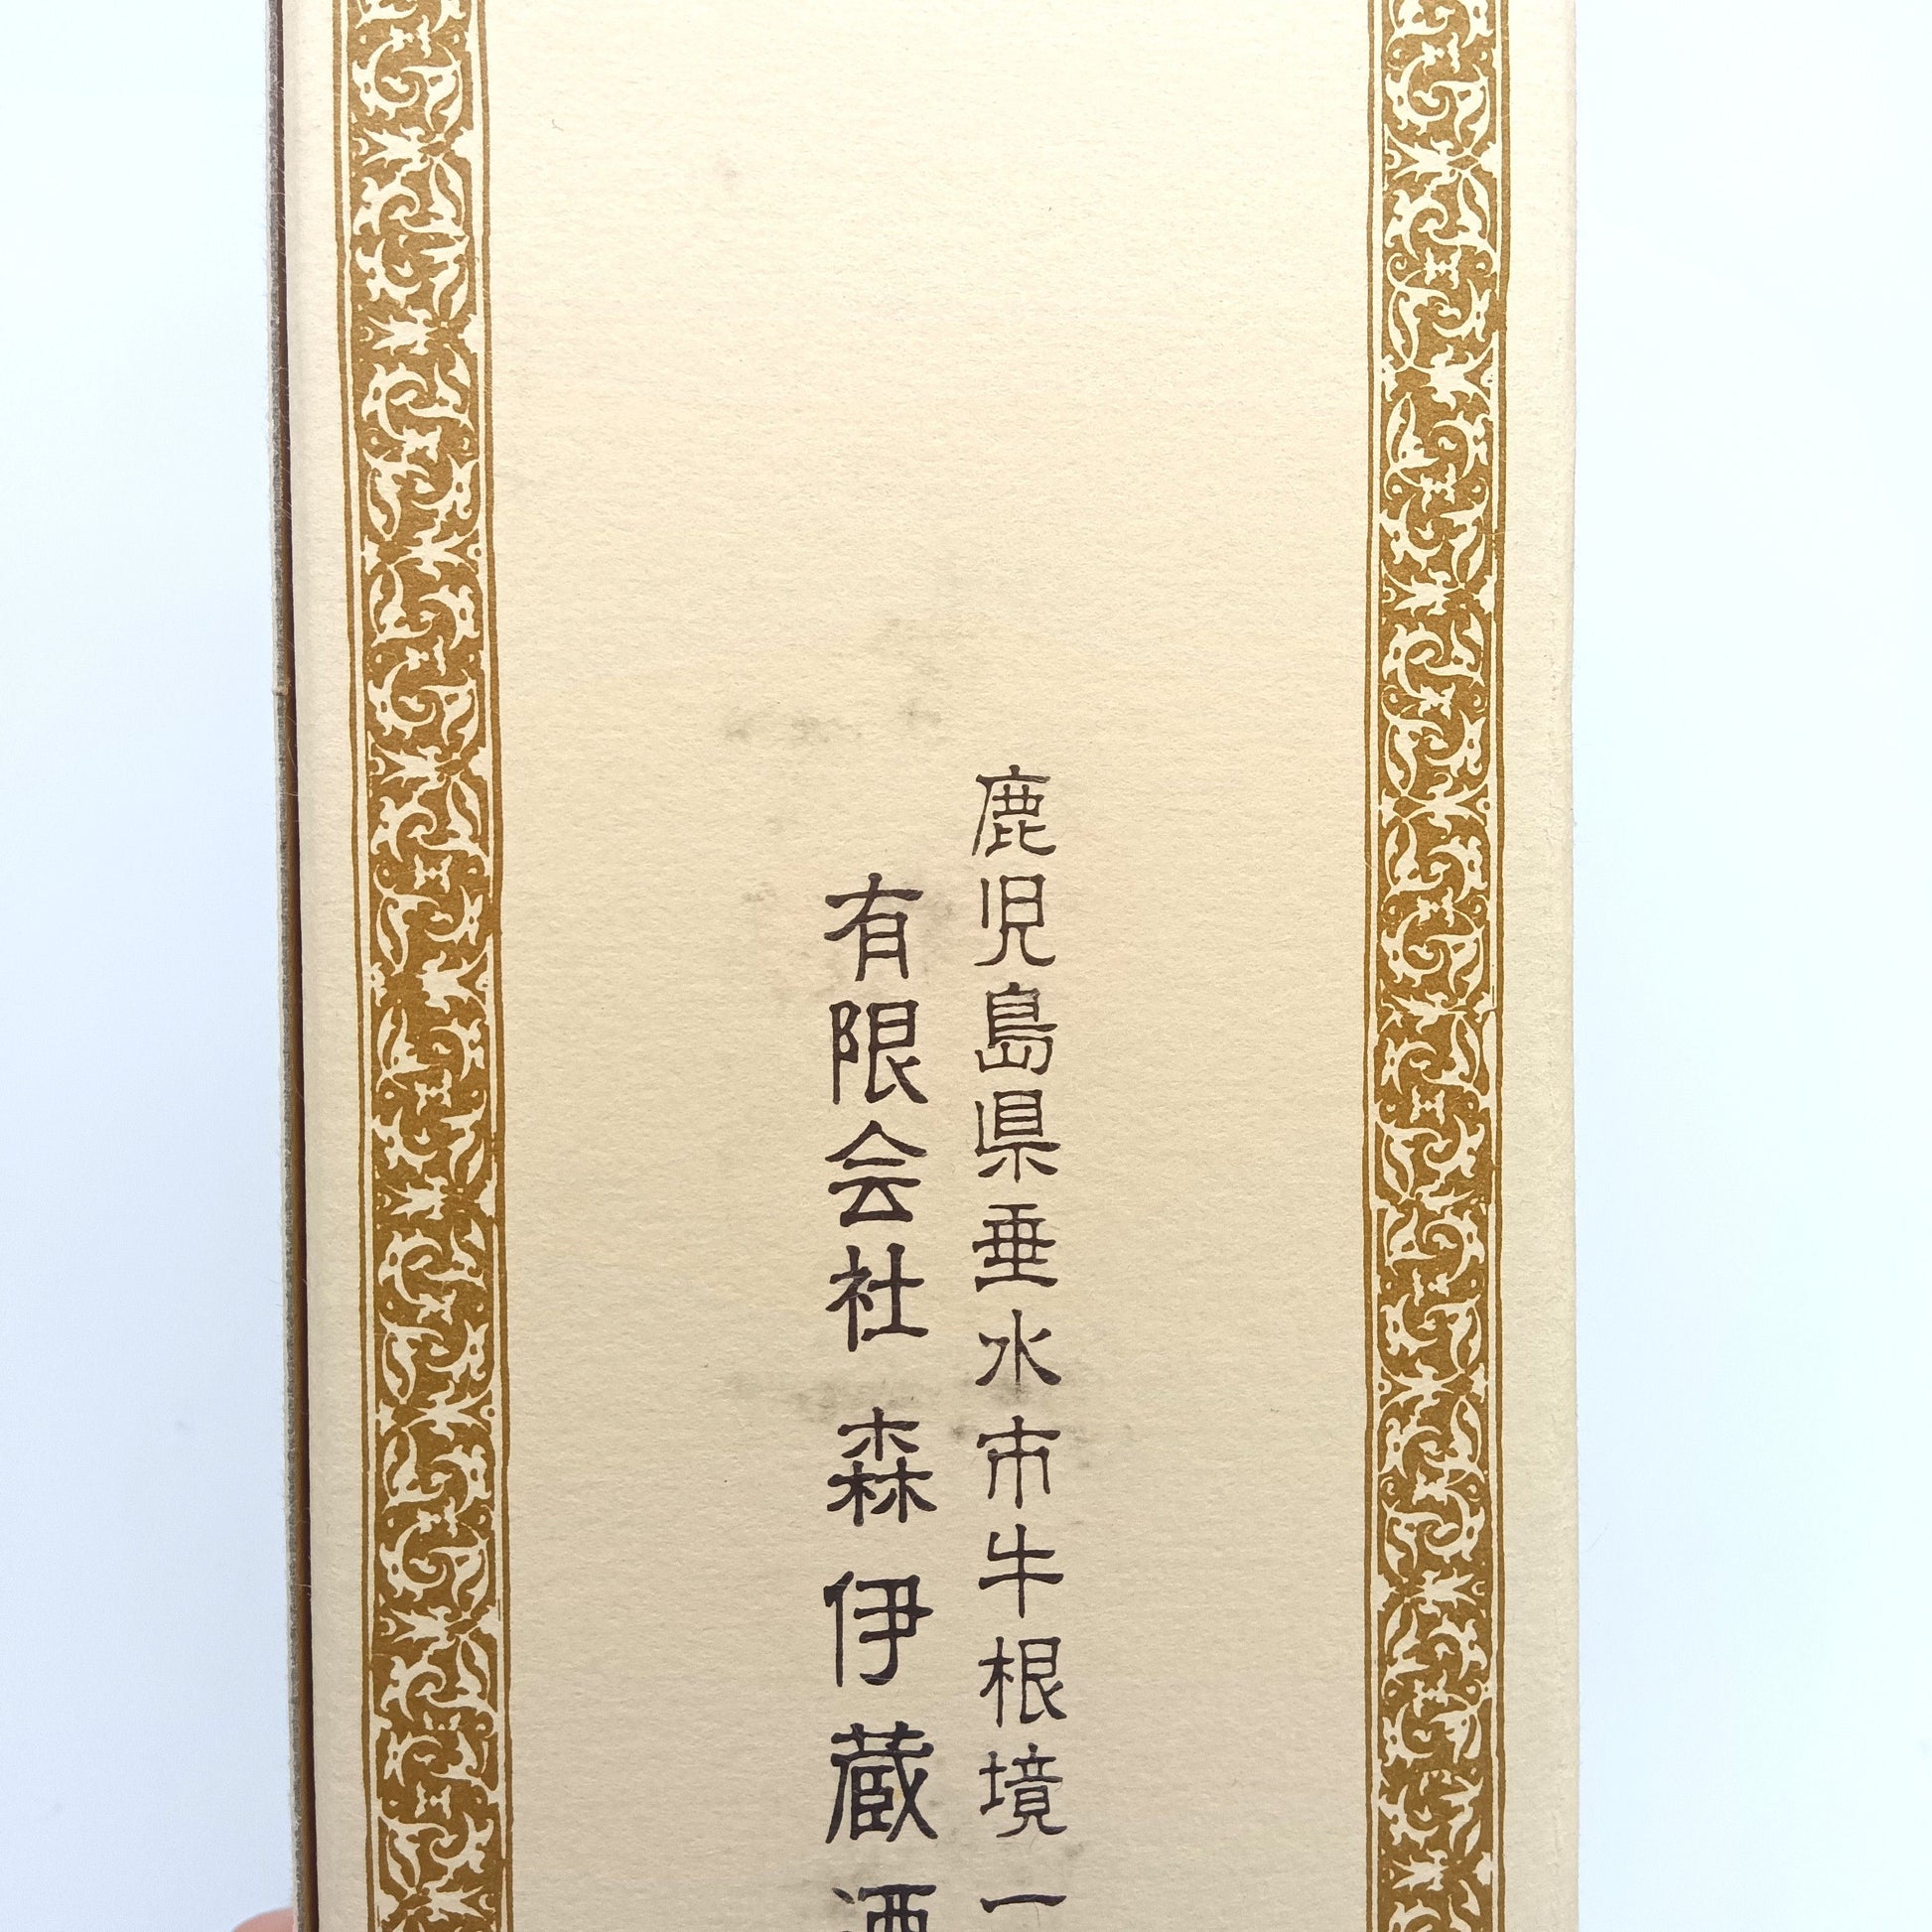 鹿児島県垂水市牛根境一
有限会社 森伊蔵酒